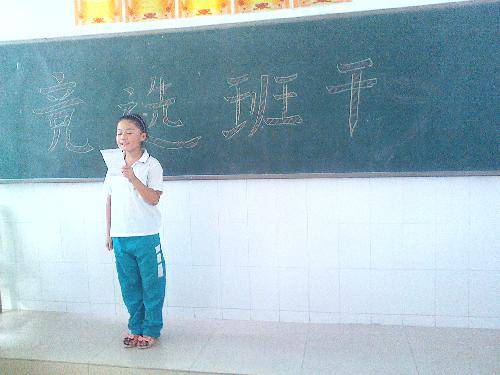 竞选班干